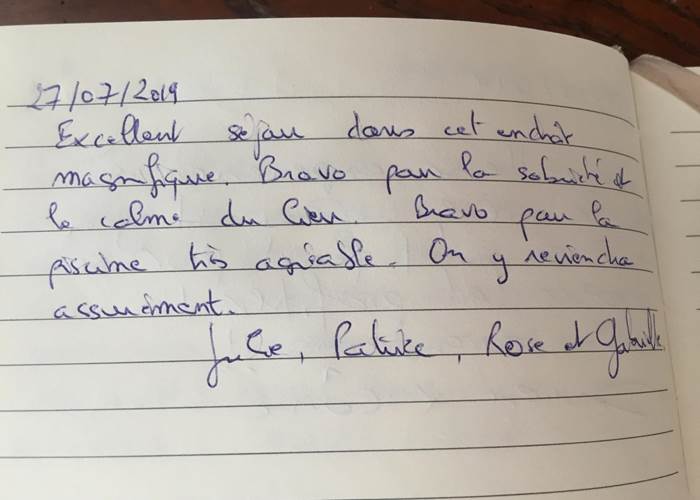 27/07/2019
Excellent séjour dans cet endroit
magnifique. Bravo pour la sobriété et
le calme du lieu. Bravo pour la
piscine très agréable. On y reviendra
assurément.
Julie, Patrice, Rose et Gabrielle